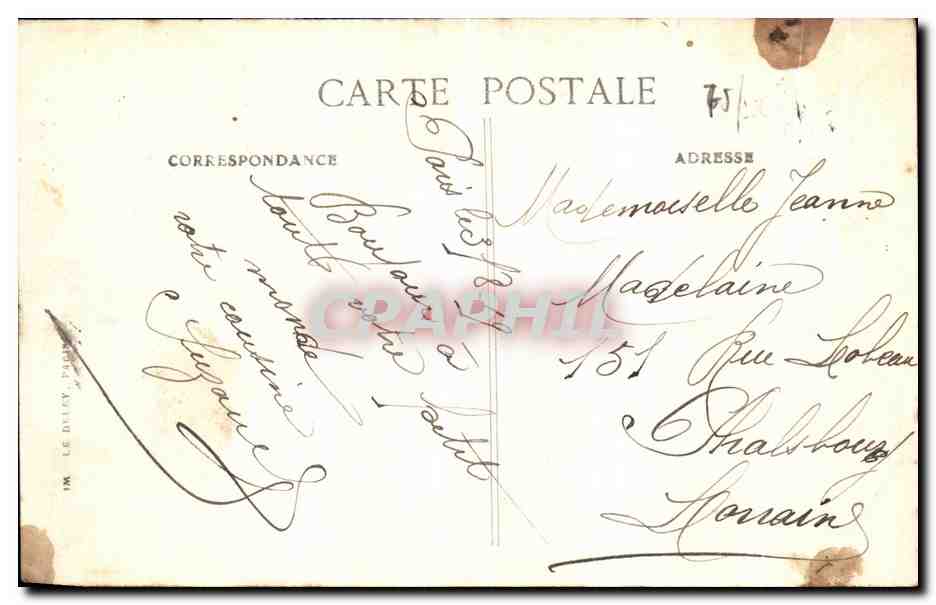 CARTE POSTALE
75/
CORRESPONDANCE
ADRESSE
Paris le
Bonjour à
tout votre petit
monde
votre cousine
Suzanne
Mademoiselle Jeanne
Madelaine
151 Rue Lobeau
Phalsbourg
Lorraine
CRAPHIL
LE DELEY, PARIS